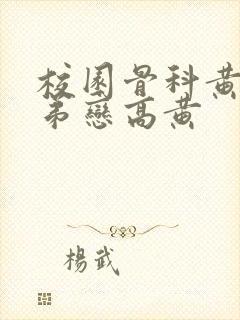 校園骨科黃
弟戀高黃
楊武